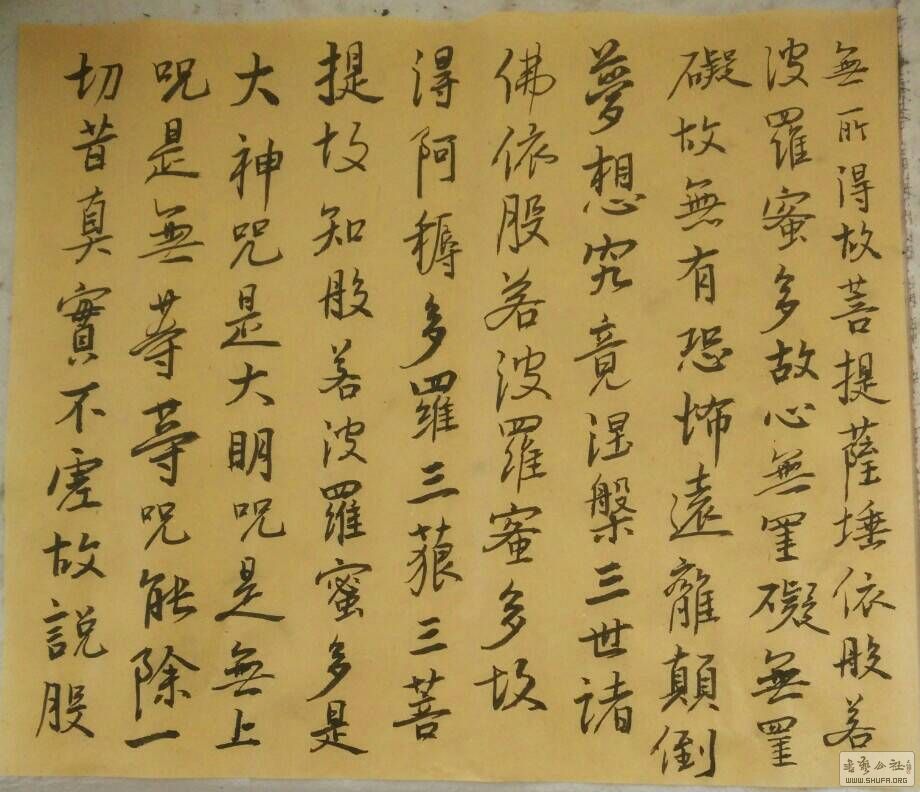 無所得故菩提薩埵依般若
波羅蜜多故心無罣礙無罣
礙故無有恐怖遠離顛倒
夢想究竟涅槃三世諸
佛依般若波羅蜜多故
得阿耨多羅三藐三菩
提故知般若波羅蜜多是
大神咒是大明咒是無上
咒是無等等咒能除一
切苦真實不虛故説般
书艺公社
WWW.SHUFA.ORG